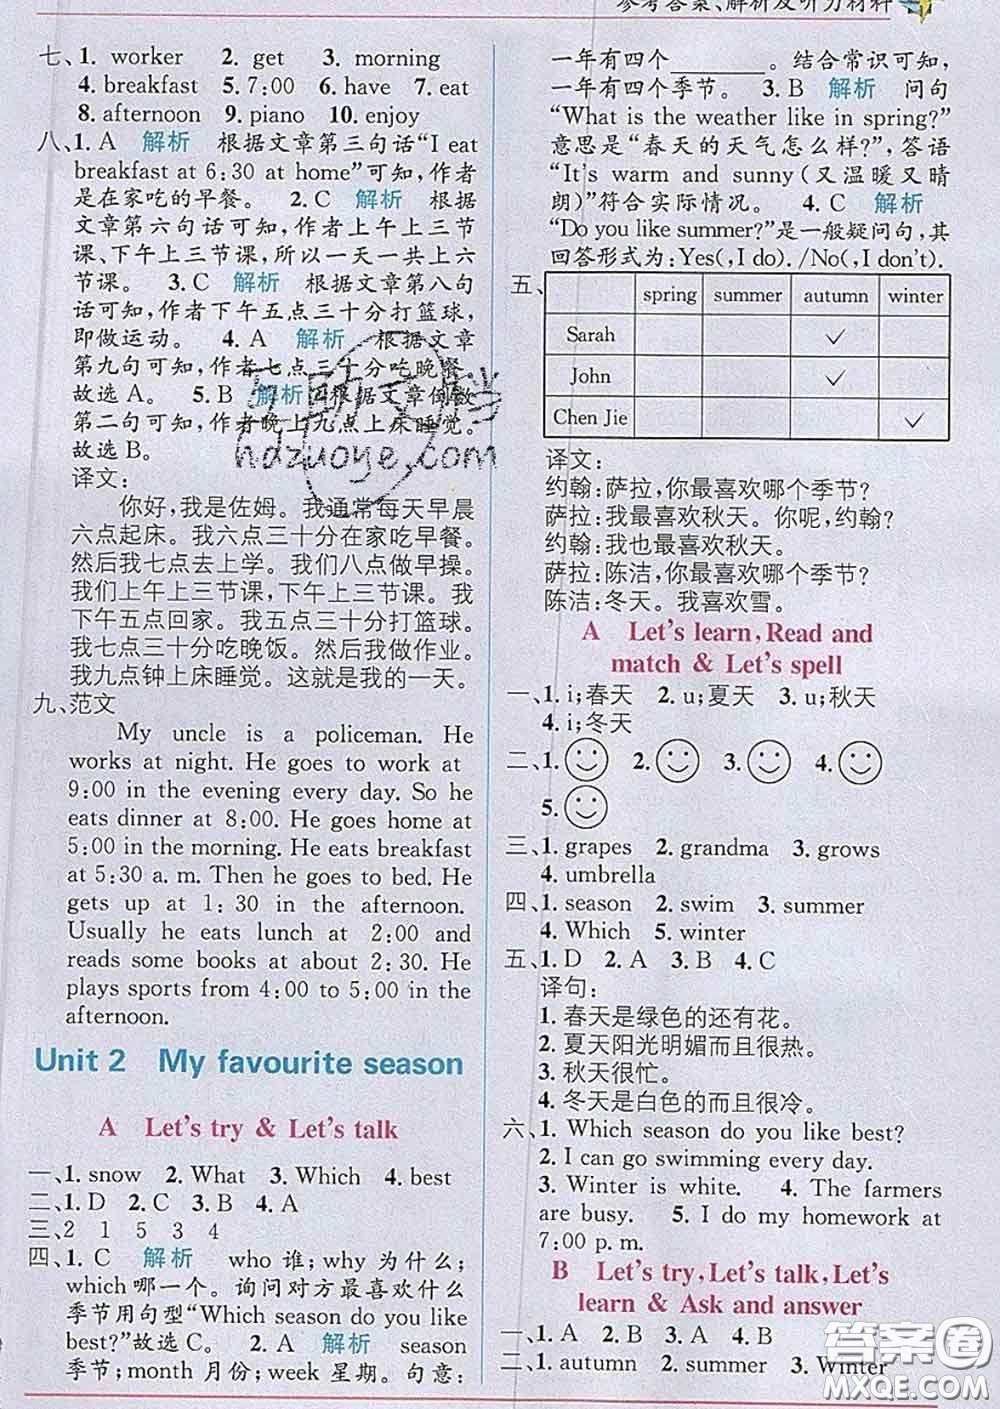 参考答案、解析及听力材料
七、1. worker 2. get 3. morning
4. breakfast 5. 7:00 6. have 7. eat
8. afternoon 9. piano 10. enjoy
八、1. A 解析 根据文章第三句话“I eat
breakfast at 6:30 at home”可知,作者
是在家吃的早餐。 2. C 解析 根据
文章第六句话可知,作者上午上三节
课、下午上三节课,所以一天一共上六
节课。 3. C 解析 根据文章第八句
话可知,作者下午五点三十分打篮球,
即做运动。 4. A 解析 根据文章
第九句可知,作者七点三十分吃晚餐。
故选 A。 5. B 解析 根据文章倒数
第二句可知,作者晚上九点上床睡觉。
故选 B。
译文:
你好,我是佐姆。我通常每天早晨
六点起床。我六点三十分在家吃早餐。
然后我七点去上学。我们八点做早操。
我们上午上三节课,下午上三节课。我
下午五点回家。我五点三十分打篮球。
我七点三十分吃晚饭。然后做作业。
我九点钟上床睡觉。这就是我的一天。
九、范文
My uncle is a policeman. He
works at night. He goes to work at
9:00 in the evening every day. So he
eats dinner at 8:00. He goes home at
5:00 in the morning. He eats breakfast
at 5:30 a. m. Then he goes to bed. He
gets up at 1:30 in the afternoon.
Usually he eats lunch at 2:00 and
reads some books at about 2:30. He
plays sports from 4:00 to 5:00 in the
afternoon.
Unit 2 My favourite season
A Let's try & Let's talk
一、1. snow 2. What 3. Which 4. best
二、1. D 2. C 3. B 4. A
三、2 1 5 3 4
四、1. C 解析 who 谁;why 为什么;
which哪一个。询问对方最喜欢什么
季节用句型“Which season do you like
best?”故选 C。 2. A 解析 season
季节;month 月份;week 星期。句意:
一年有四个______。结合常识可知,
一年有四个季节。 3. B 解析 问句
“What is the weather like in spring?”
意思是“春天的天气怎么样?”,答语
“It's warm and sunny(又温暖又晴
朗)”符合实际情况。 4. C 解析
“Do you like summer?”是一般疑问句,其
回答形式为:Yes(,I do). /No(,I don't).
五、 spring summer autumn winter
Sarah ✓
John ✓
Chen Jie ✓
译文:
约翰:萨拉,你最喜欢哪个季节?
萨拉:我最喜欢秋天。你呢,约翰?
约翰:我也最喜欢秋天。
萨拉:陈洁,你最喜欢哪个季节?
陈洁:冬天。我喜欢雪。
A Let's learn, Read and
match & Let's spell
一、1. i;春天 2. u;夏天 3. u;秋天
4. i;冬天
二、1. 2. 3. 4.
5.
三、1. grapes 2. grandma 3. grows
4. umbrella
四、1. season 2. swim 3. summer
4. Which 5. winter
五、1. D 2. A 3. B 4. C
译句:
1. 春天是绿色的还有花。
2. 夏天阳光明媚而且很热。
3. 秋天很忙。
4. 冬天是白色的而且很冷。
六、1. Which season do you like best?
2. I can go swimming every day.
3. Winter is white. 4. The farmers
are busy. 5. I do my homework at
7:00 p. m.
B Let's try, Let's talk, Let's
learn & Ask and answer
一、1. A 2. B 3. A 4. B
二、1. autumn 2. summer 3. Winter
互助文档
hdzuoye.com
答案圈
MXQE.COM